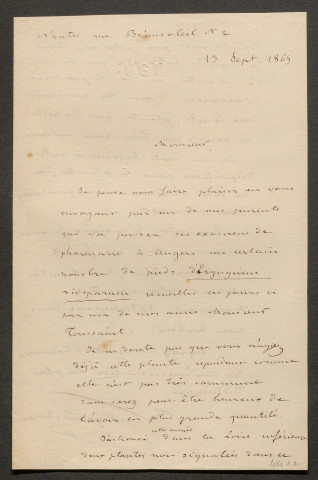 Nantes rue Beausoleil N 2
13 Sept 1865
Monsieur,
Je pense vous faire plaisir en vous
envoyant par un de mes parents
qui va passer ses examens de
pharmacie à Angers un certain
nombre de pieds d'Eryngium
viviparum recueillis ces jours ci
par un de mes amis Monsieur
Toussaint.
Je ne doute pas que vous n'ayez
déjà cette plante, cependant comme
elle n'est pas très commune
vous serez peut être heureux de
l'avoir en plus grande quantité.
cette année
dans la Loire inférieure
deux plantes non signalées dans ce